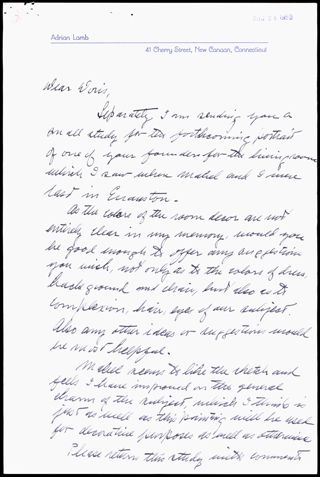 Adrian Lamb
41 Cherry Street, New Canaan, Connecticut
Dear Doris,
Separately I am sending you a
small study for the forthcoming portrait
of one of your founders for the living room
which I saw when Mabel and I were
last in Evanston.
As the colors of the room decor are not
entirely clear in my memory, would you
be good enough to offer any suggestion
you wish, not only as to the colors of dress,
background and chair, but also as to
complexion, hair, eyes of our subject.
Also any other ideas or suggestion would
be most helpful.
Mabel seems to like the sketch and
feels I have improved on the general
charm of the subject, which I think is
just as well as this painting will be used
for decorative purposes as well as otherwise
Please return this study with comments